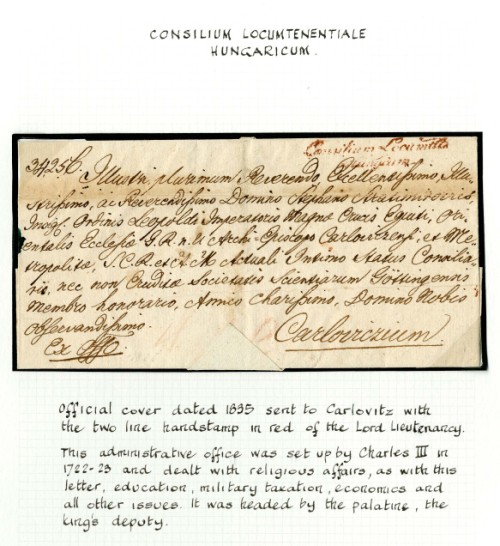 CONSILIUM LOCUMTENENTIALE
HUNGARICUM.
Consilium Locumtlle
Hungaricum
34256. Illustri, plurimum Reverendo, Excellentissimo, Illu
strissimo, ac Reverendissimo Domino Stephano Stratimirovics,
Insig. Ordinis Leopoldi Imperatoris Magnae Crucis Equiti, Ori
entalis Ecclesiae G. R. n. U. Archi-Episcopo Carlovizensi, et Me
tropolitae, S. C. R. et A. M. Actuali Intimo Status Consilia
rio, nec non Eruditae Societatis Scientiarum Göttingensis
Membro honorario, Amico Charissimo, Domino Nobis
observandissimo.
Ex Offo
Carloviczium.
Official cover dated 1835 sent to Carlovitz with
the two line handstamp in red of the Lord Lieutenancy.
This administrative office was set up by Charles III in
1722-23 and dealt with religious affairs, as with this
letter, education, military taxation, economics and
all other issues. It was headed by the palatine, the
king's deputy.